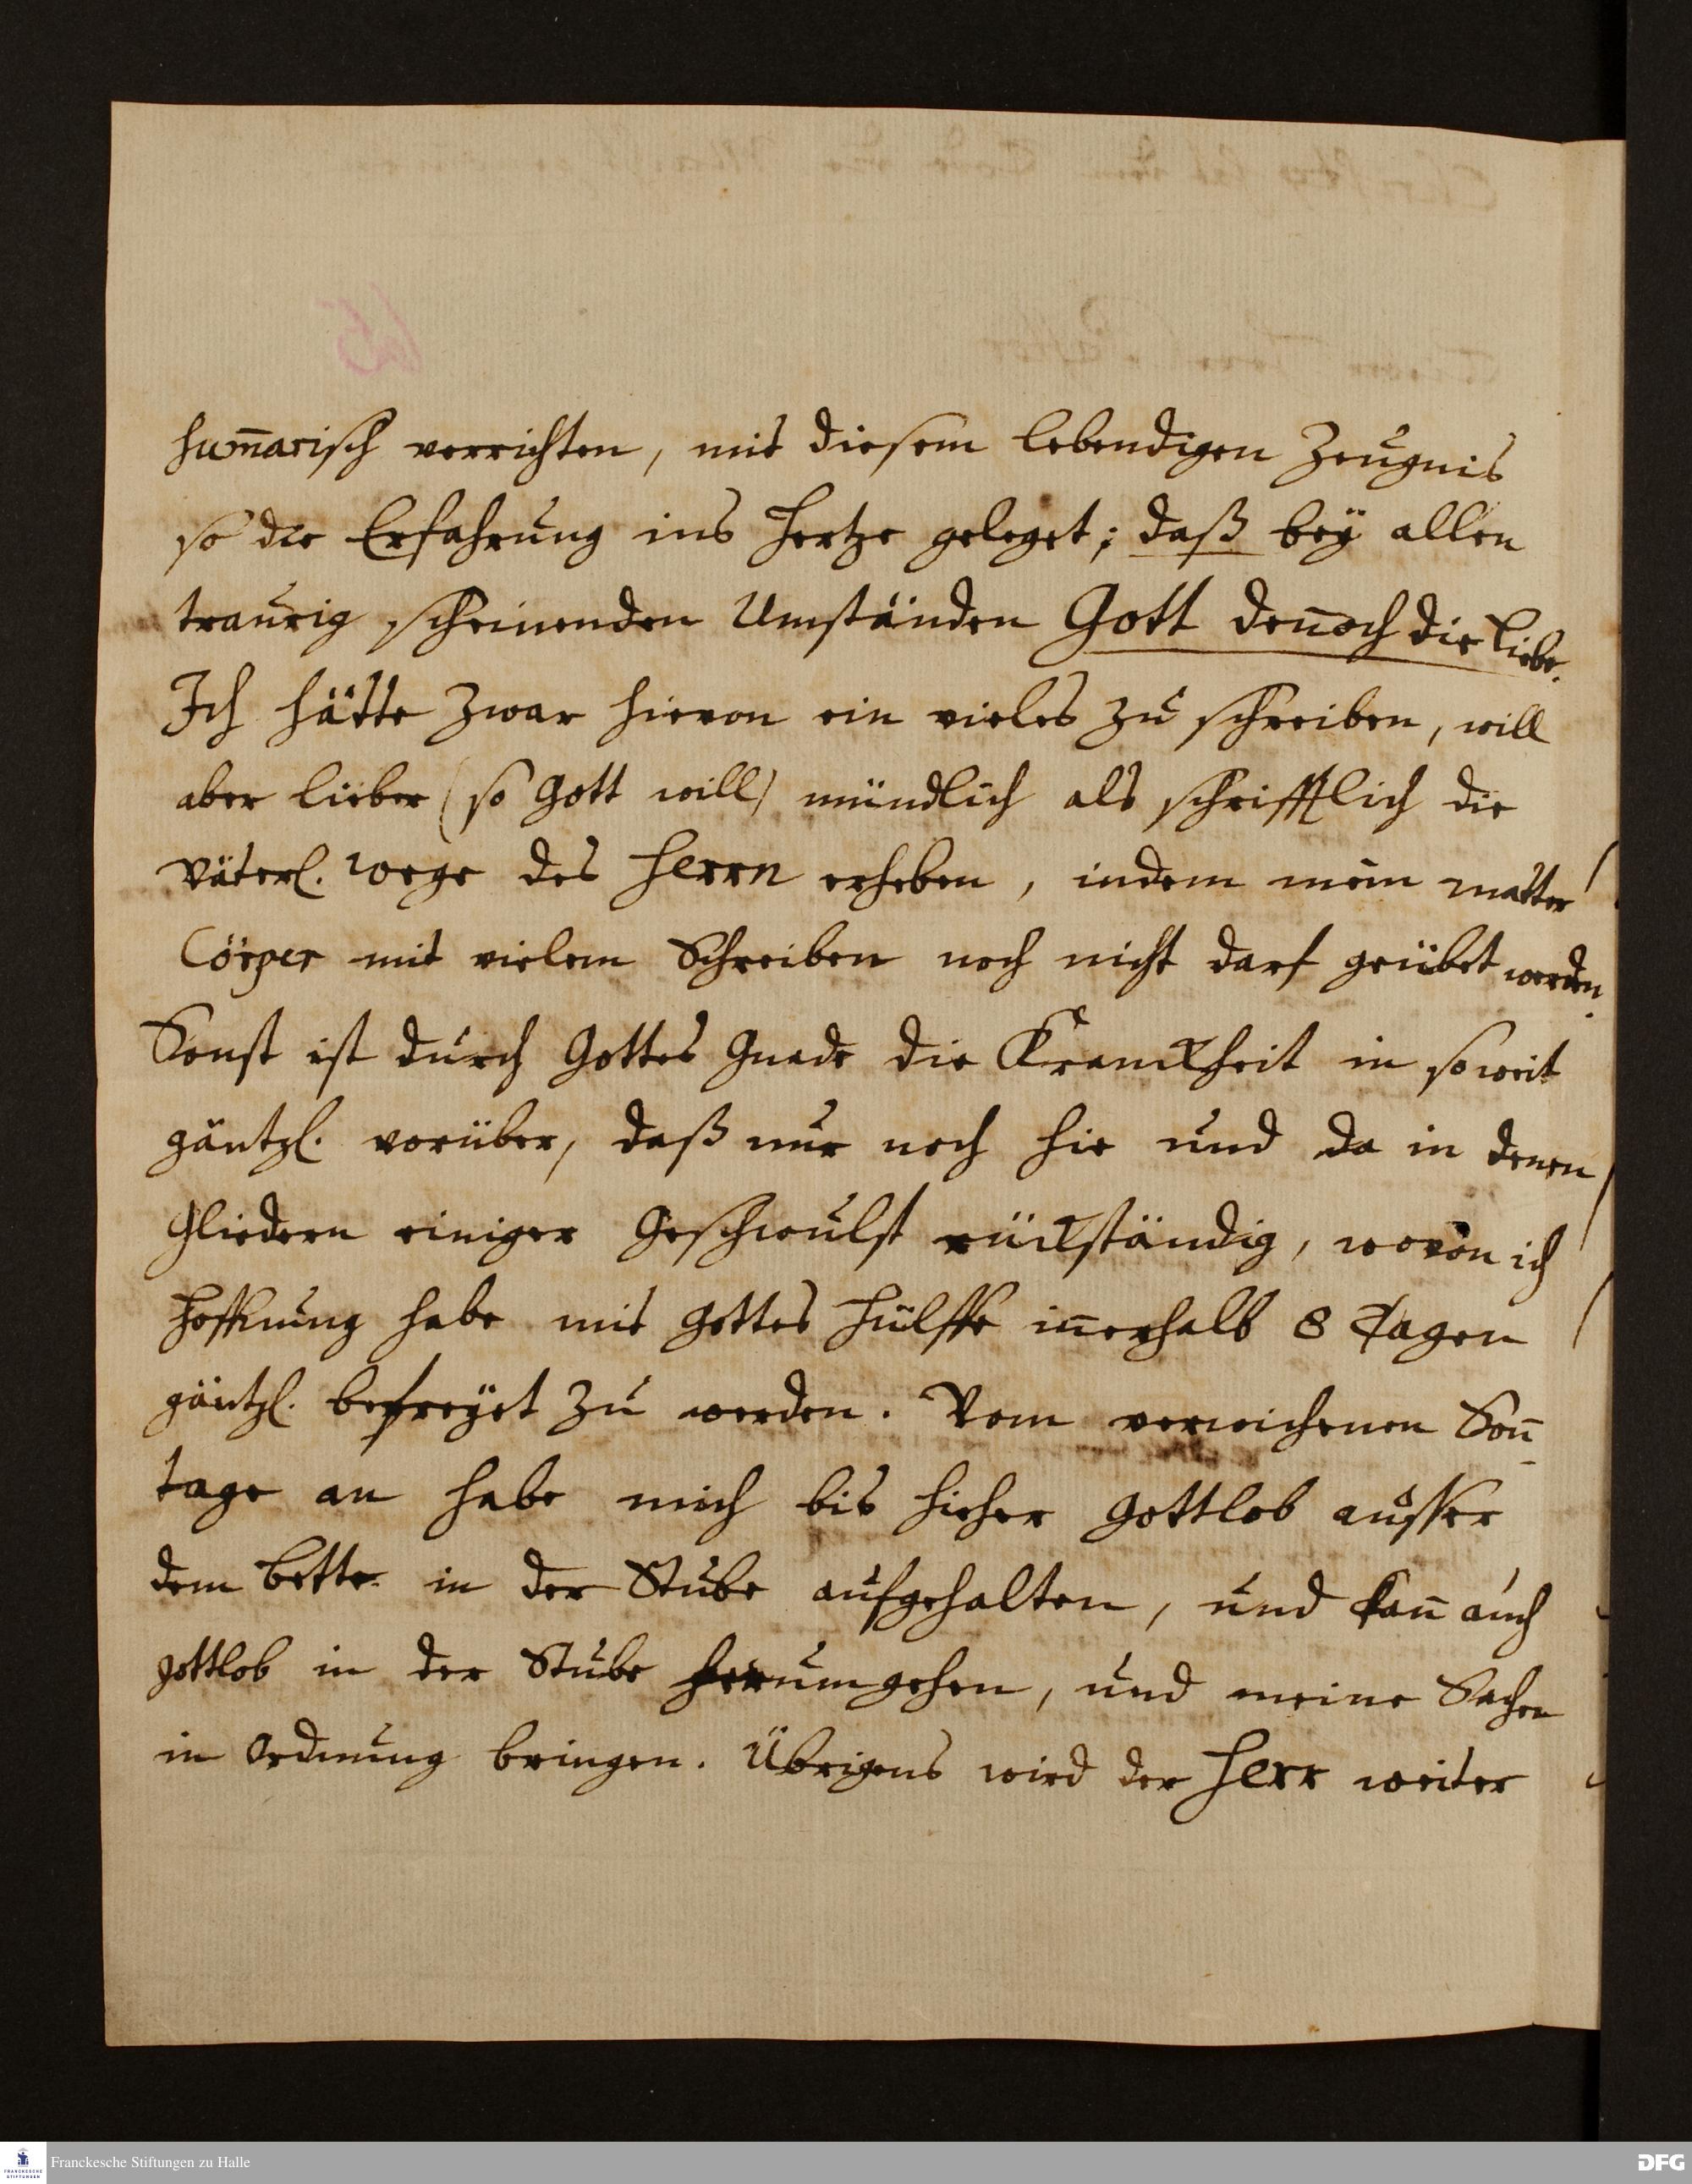 sum̄arisch verrichten, mit diesem lebendigen Zeugnis
so die Erfahrung ins Hertze geleget; daß beÿ allen
traurig scheinenden Umständen Gott den̄och die Liebe.
Ich hätte zwar hievon ein vieles zu schreiben, will
aber lieber (so Gott will) mündlich als schrifftlich die
Väterl. Wege des Herrn erheben, indem mein matter
Cörper mit vielem Schreiben noch nicht darf geübet werden.
Sonst ist durch Gottes Gnade die Kranckheit in soweit
gäntzl. vorüber, daß nur noch hie und da in denen
Gliedern einiger Geschwulst rückständig, wovon ich
Hoffnung habe mit Gottes Hülffe in̄erhalb 8 Tagen
gäntzl. befreÿet zu werden. Vom verwichenen Son̄-
tage an habe mich bis hieher Gottlob ausser
dem Bette in der Stube aufgehalten, und kan̄ auch
gottlob in der Stube herumgehen, und meine Sachen
in Ordnung bringen. Übrigens wird der Herr weiter
Franckesche Stiftungen zu Halle
FRANCKESCHE STIFTUNGEN
DFG